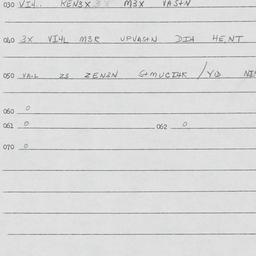 030 VI4L KEN3X 3X M3X VAS+N
040 3X VI4L M3R UPVAS+N DIA HENT
050 VAIL 23 ZEN3N G+MUCI4R / YD NI
060 0
061 0 062 0
070 0